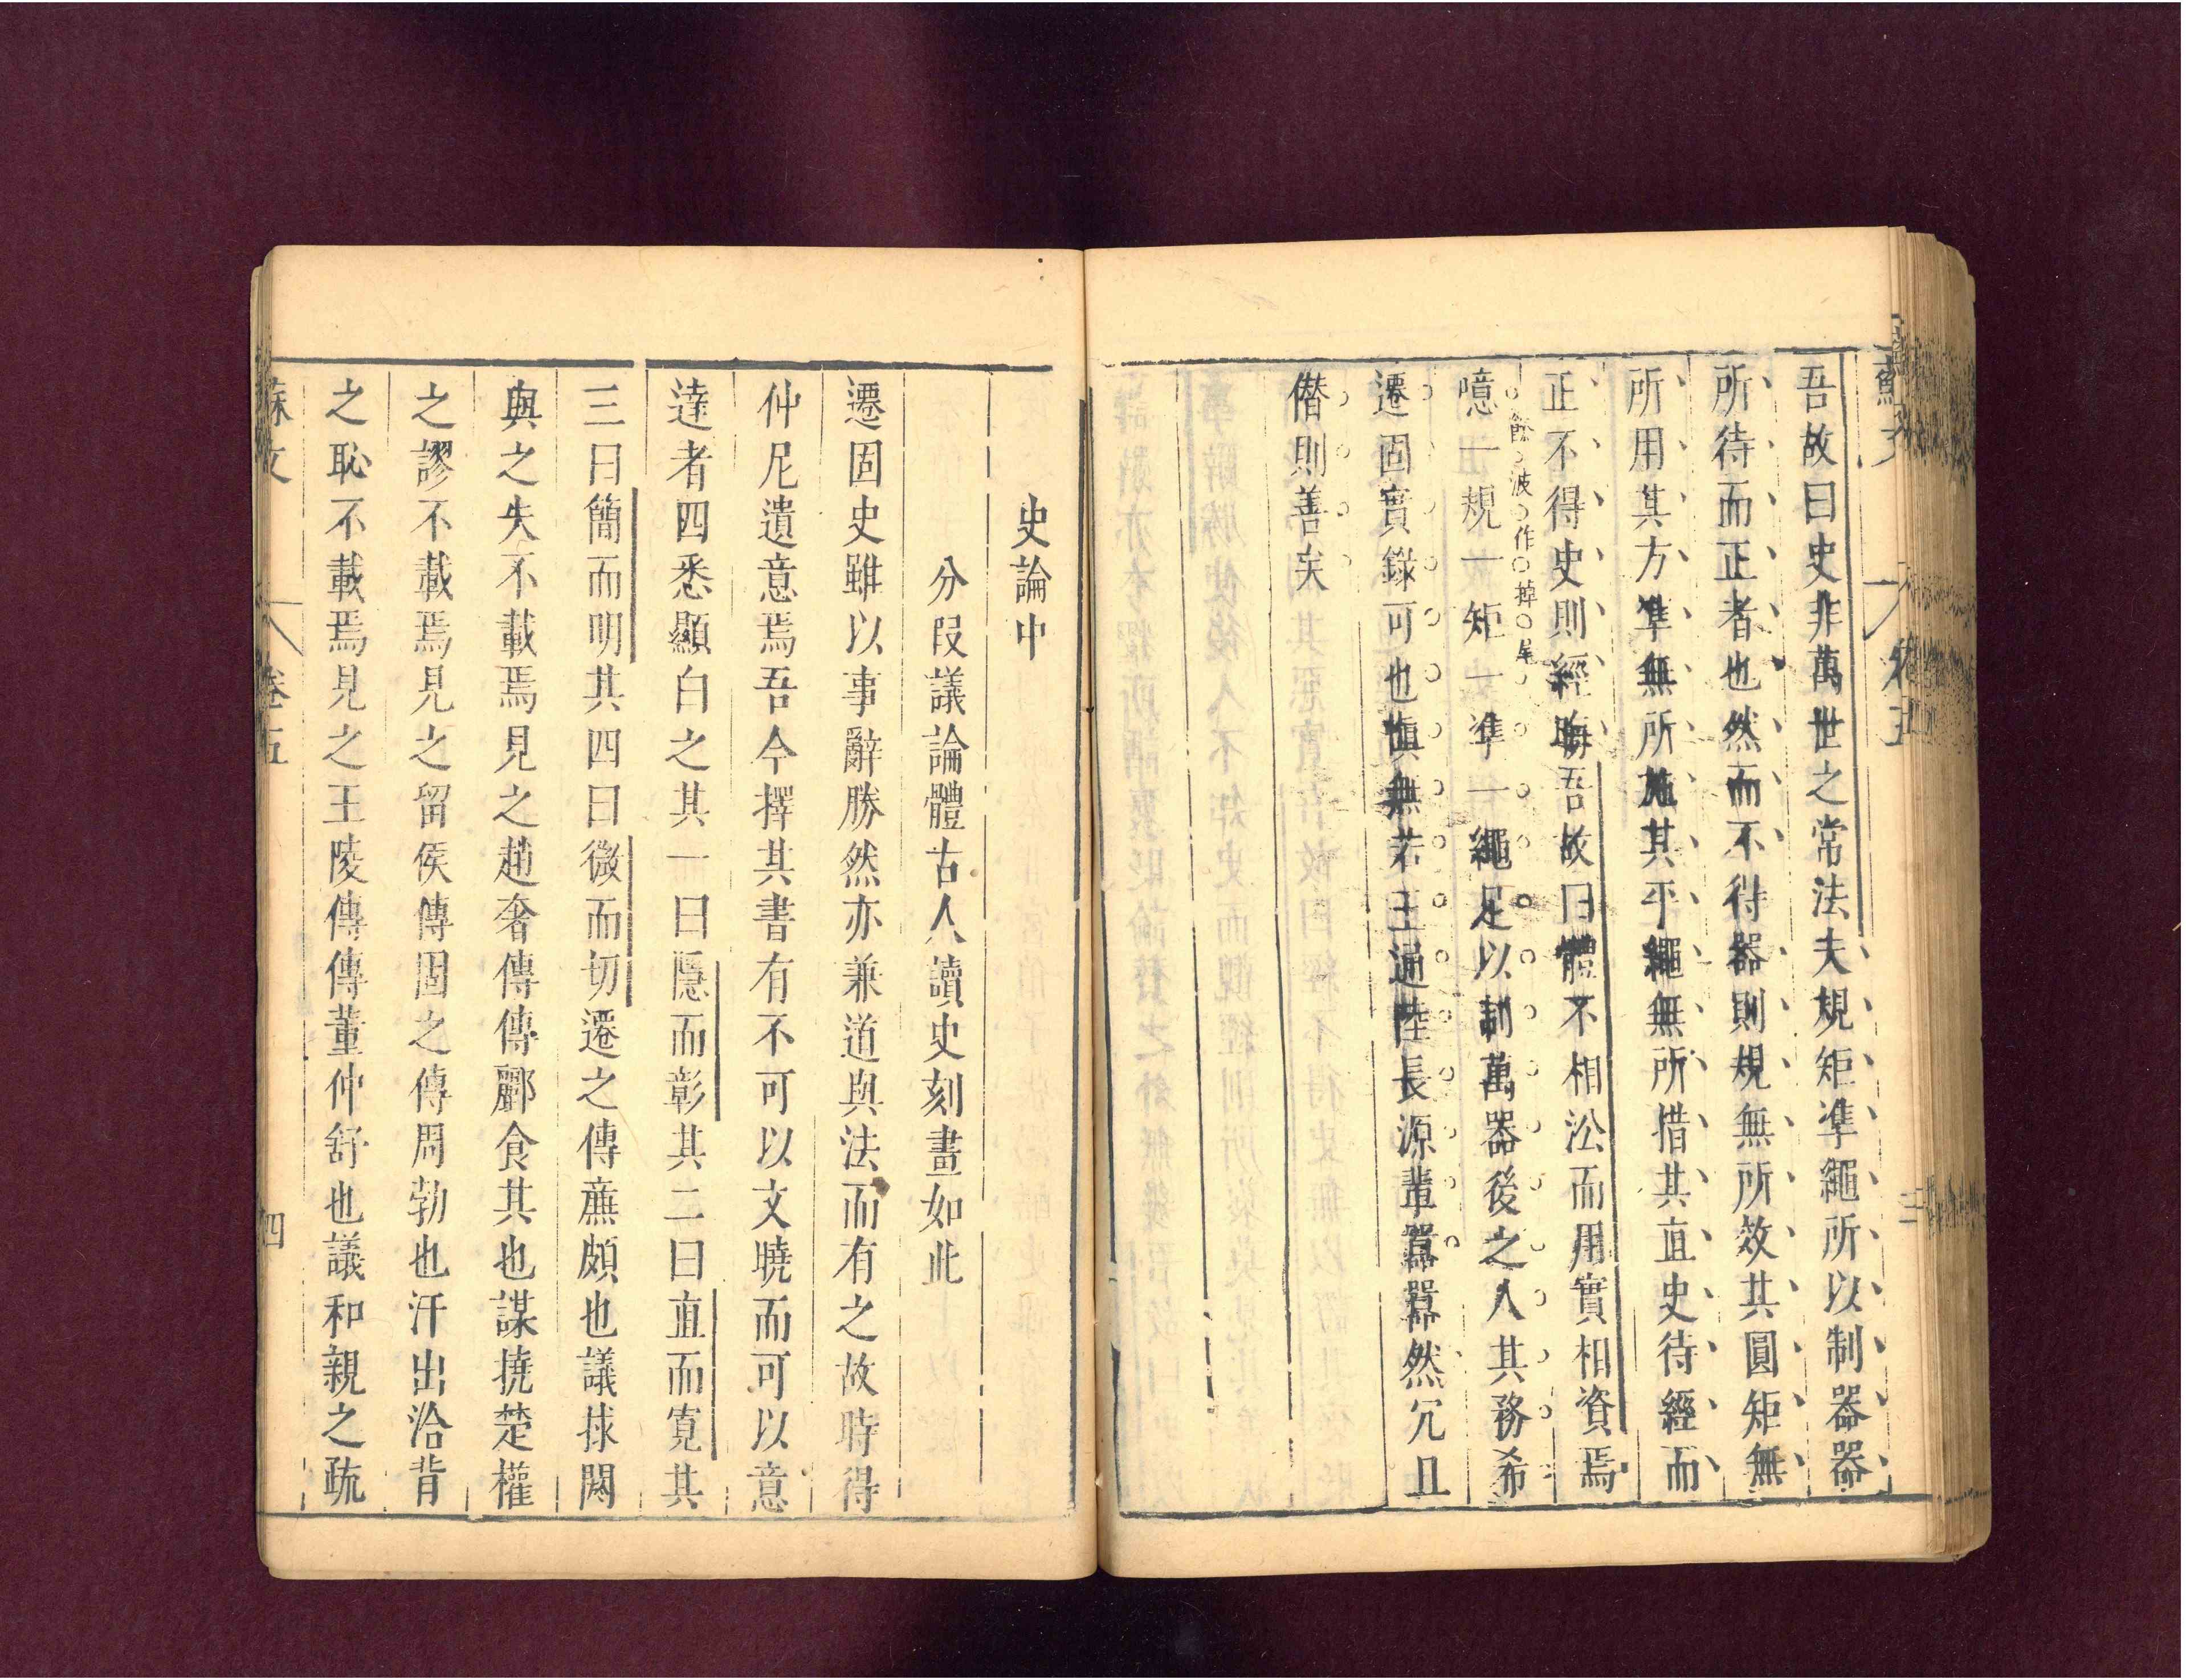 蘇文
卷五
吾故曰史非萬世之常法夫規矩準繩所以制器器
所待而正者也然而不得器則規無所效其圓矩無
所用其方準無所施其平繩無所措其直史待經而
正不得史則經晦吾故曰體不相㳂而用實相資焉
餘波作掉尾
噫一規一矩一準一繩足以訓萬器後之人其務希
遷固實錄可也愼無若王通陸長源輩囂囂然冗且
僭則善矣
史論中
分段議論體古人讀史刻畫如此
遷固史雖以事辭勝然亦兼道與法而有之故時得
仲尼遺意焉吾今擇其書有不可以文曉而可以意
達者四悉顯白之其一曰隱而彰其二曰直而寬其
三曰簡而明其四曰微而切遷之傳廉頗也議捄閼
與之失不載焉見之趙奢傳傳酈食其也謀撓楚權
之謬不載焉見之留侯傳固之傳周勃也汗出洽背
之恥不載焉見之王陵傳傳董仲舒也議和親之疏
蘇文
卷五
四